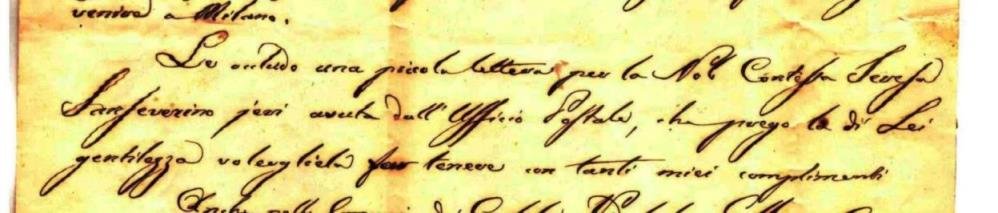 venire a Milano.
Le includo una picola lettera per la Nob. Contessa Teresa
Sanseverino jeri avuta dall'Ufficio Postale, che prego la di Lei
gentilezza volergliela far tenere con tanti miei complimenti